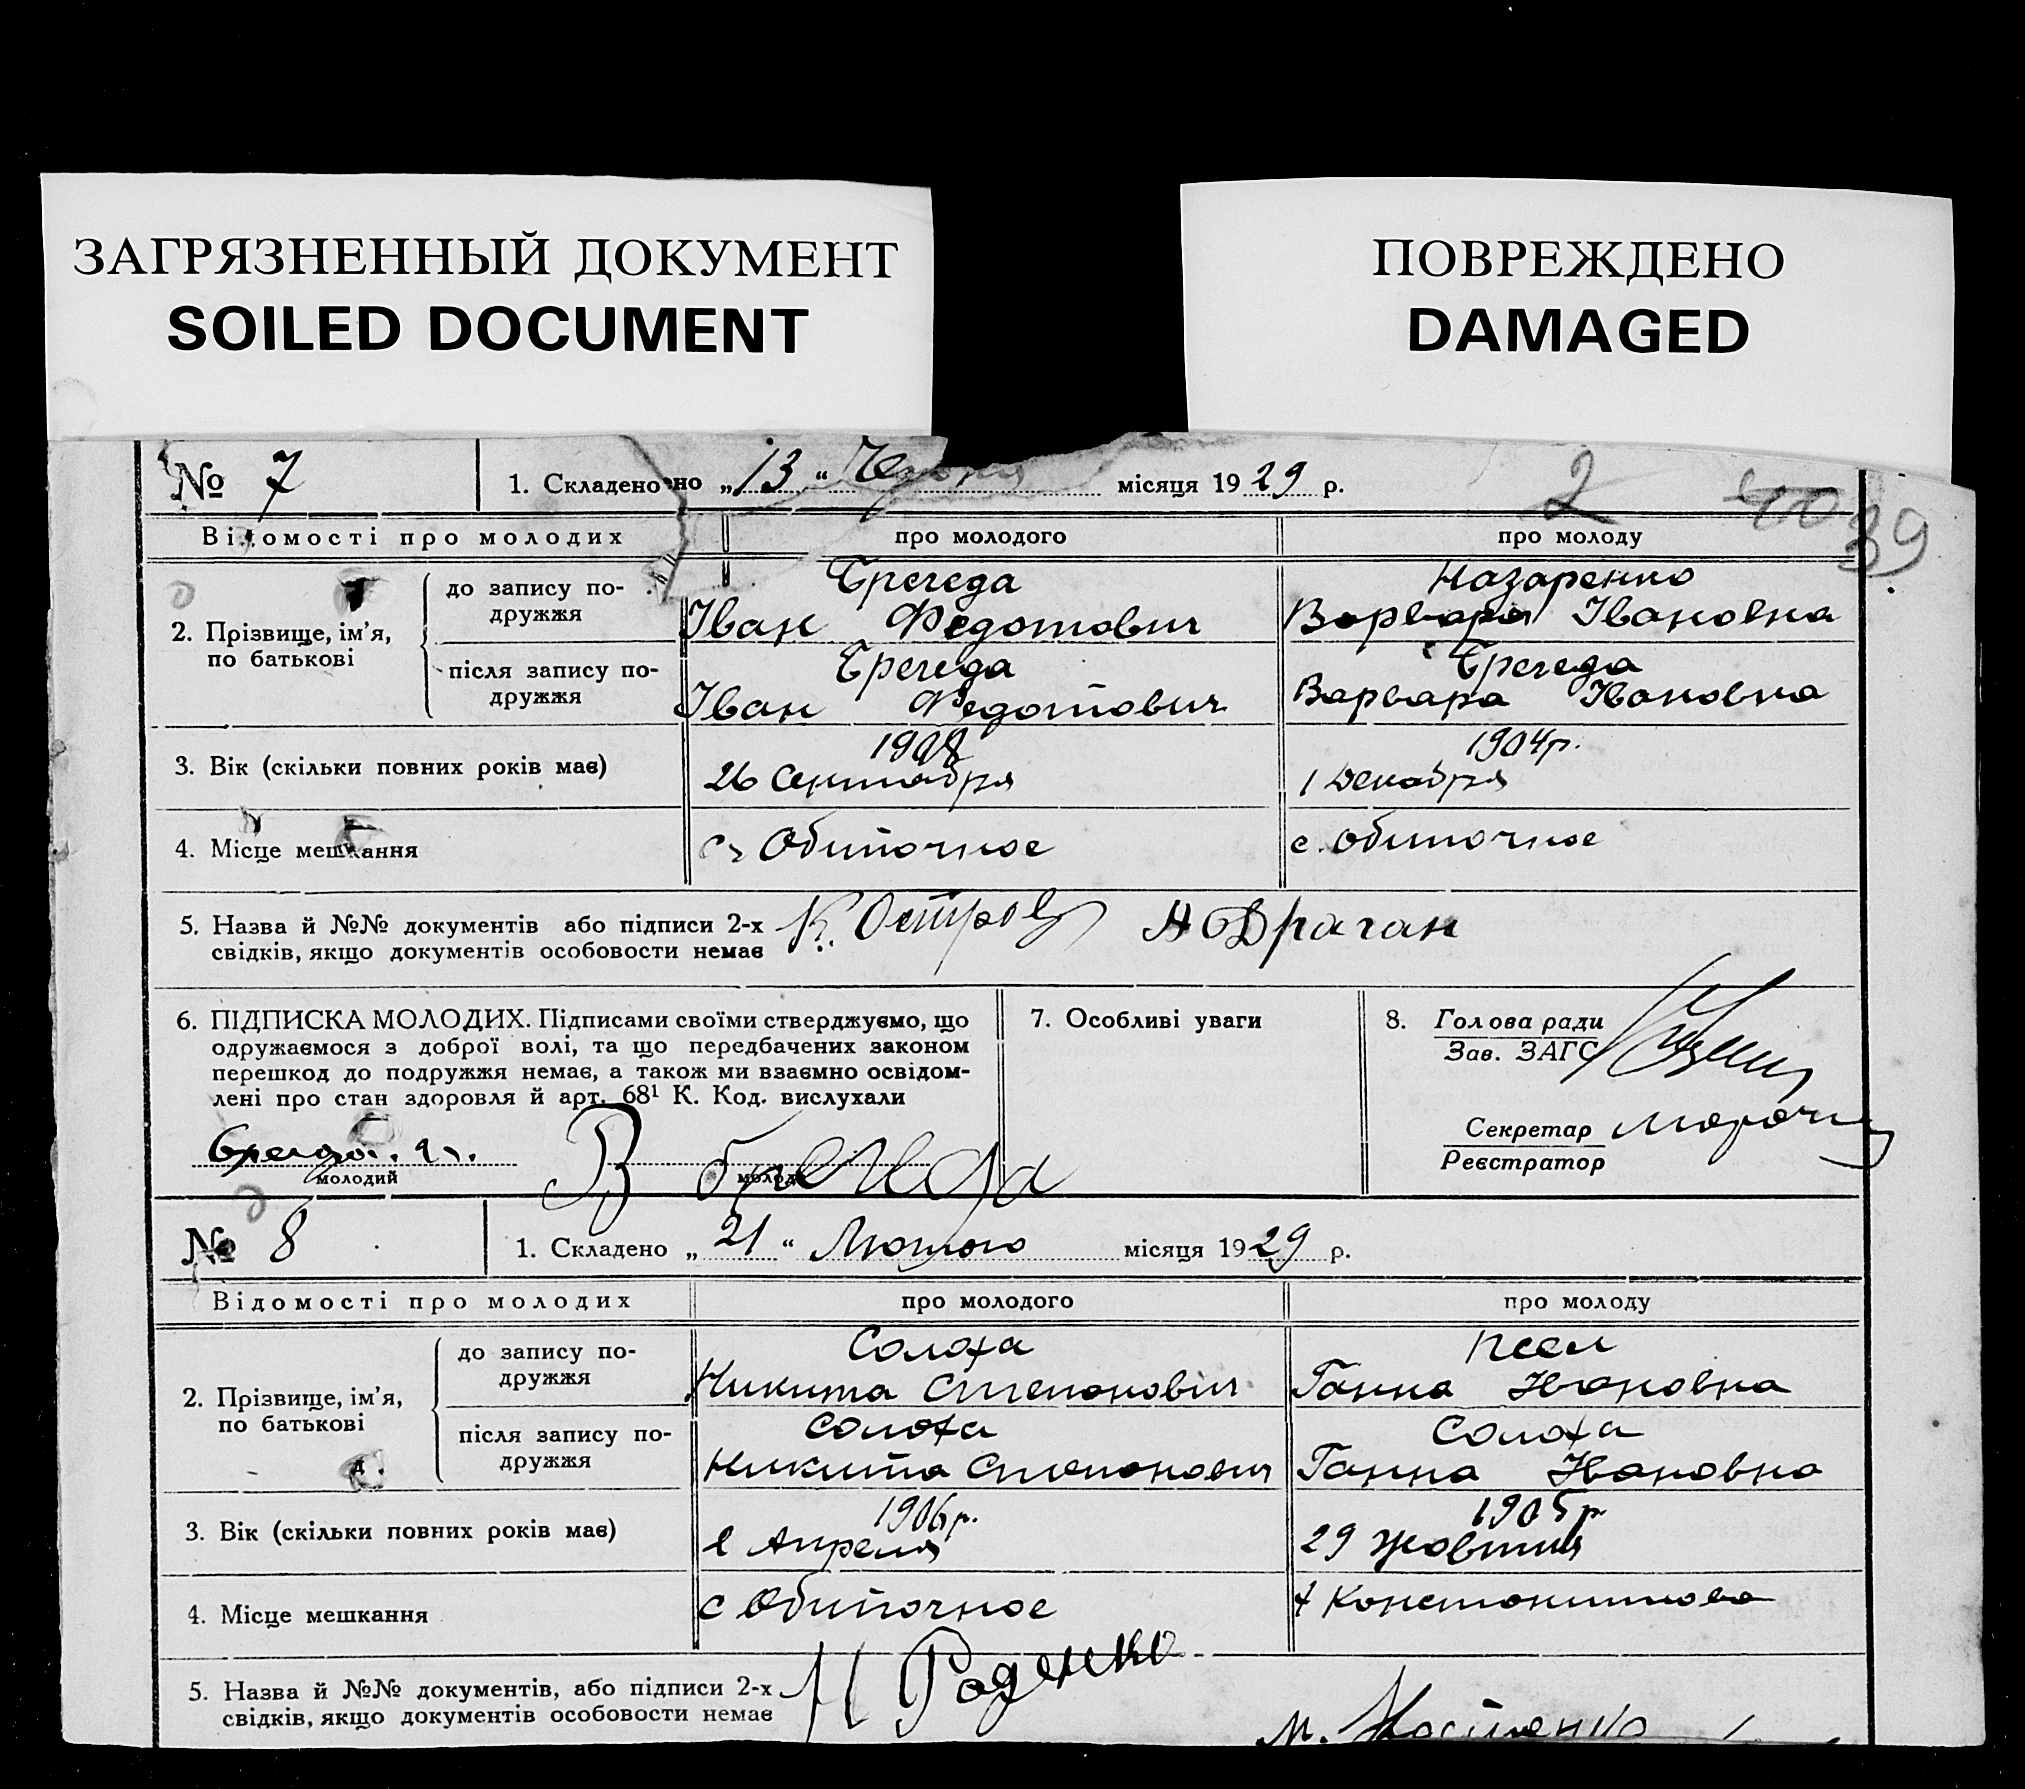 ЗАГРЯЗНЕННЫЙ ДОКУМЕНТ
SOILED DOCUMENT
ПОВРЕЖДЕНО
DAMAGED
№ 7
1. Складено но „13“ місяця 1929 р.
2
40
39
Відомості про молодих
про молодого
про молоду
2. Прізвище, ім'я,
по батькові
до запису по-
дружжя
Брегеда
Іван Федотович
Назаренко
Варвара Івановна
після запису по-
дружжя
Брегеда
Іван Федотович
Брегеда
Варвара Івановна
3. Вік (скільки повних років має)
1908
26 Сентября
1904 р.
1 Декабря
4. Місце мешкання
с. Обиточное
с. Обиточное
5. Назва й №№ документів або підписи 2-х
свідків, якщо документів особовости немає
К. Остров
Драган
6. ПІДПИСКА МОЛОДИХ. Підписами своїми стверджуємо, що
одружаємося з доброї волі, та що передбачених законом
перешкод до подружжя немає, а також ми взаємно освідом-
лені про стан здоровля й арт. 68¹ К. Код. вислухали
молодий
В Брегеда
молода
7. Особливі уваги
8. Голова ради
Зав. ЗАГС
Секретар
Реєстратор
№ 8
1. Складено „21“ Лютого місяця 1929 р.
Відомості про молодих
про молодого
про молоду
2. Прізвище, ім'я,
по батькові
до запису по-
дружжя
Солоха
Никита Степонович
Псел
Ганна Ивановна
після запису по-
дружжя
Солоха
Никита Степонович
Солоха
Ганна Ивановна
3. Вік (скільки повних років має)
1906 р.
Апреля
1905 р
29 Жовтня
4. Місце мешкання
с Обиточное
Константиновка
5. Назва й №№ документів, або підписи 2-х
свідків, якщо документів особовости немає
Н Роденко
М. Костенко